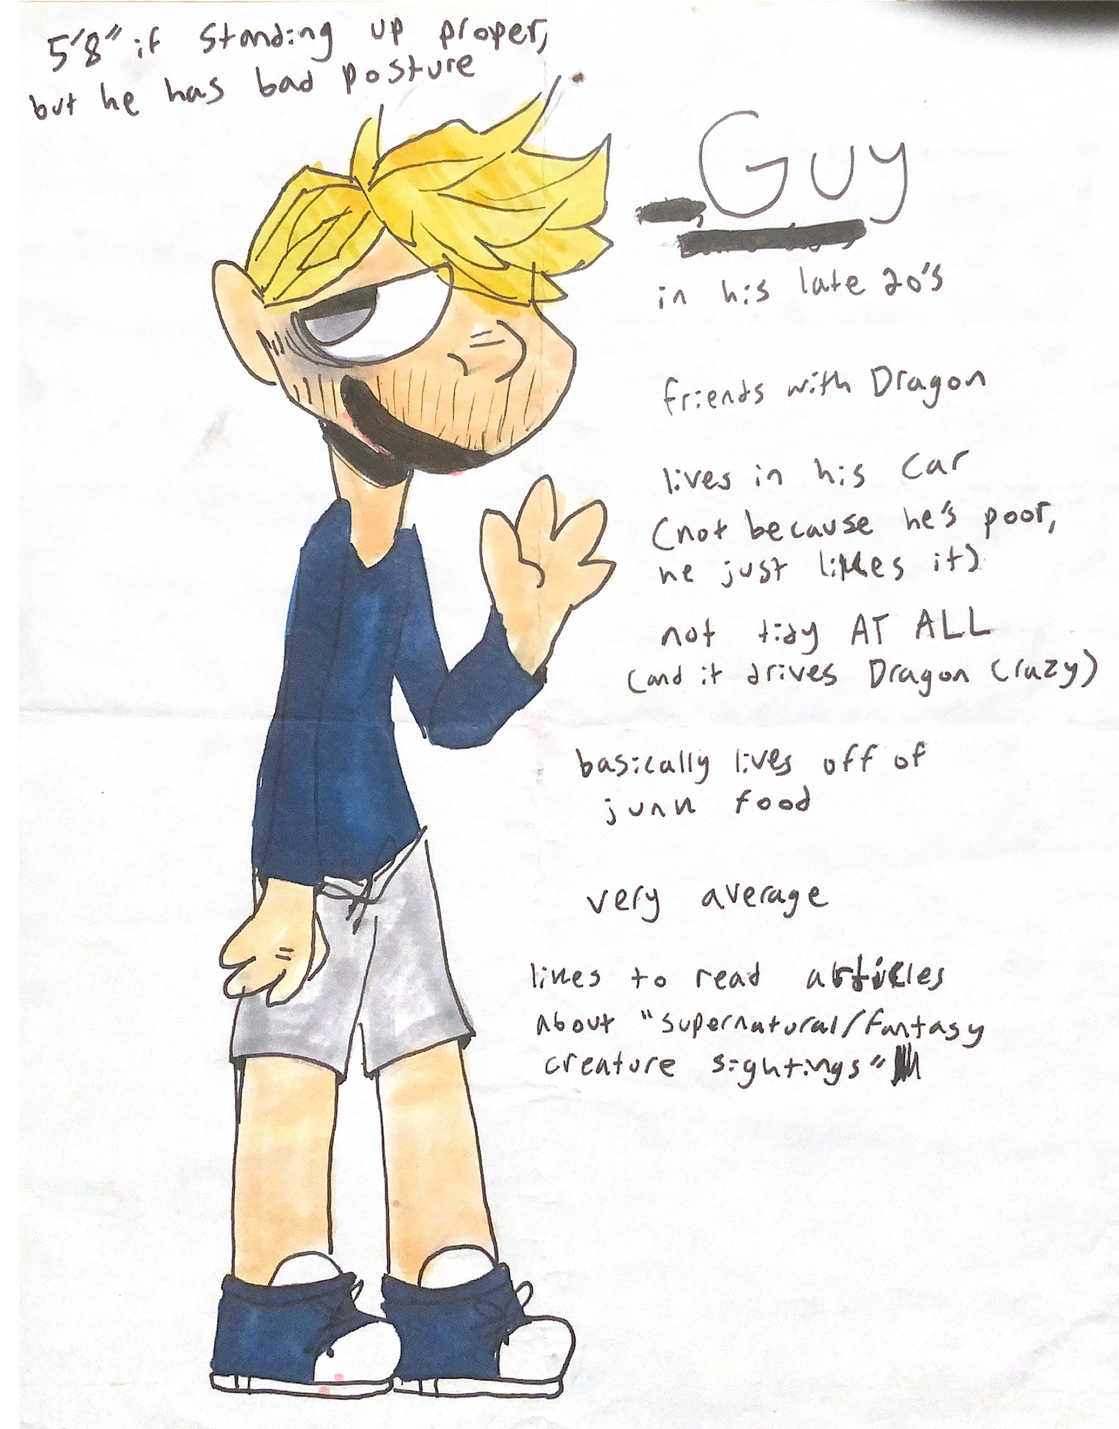 5'8" if standing up proper,
but he has bad posture
Guy
in his late 20's
friends with Dragon
lives in his car
(not because he's poor,
he just likes it)
not tidy AT ALL
(and it drives Dragon crazy)
basically lives off of
junk food
very average
likes to read articles
about "supernatural/fantasy
creature sightings"